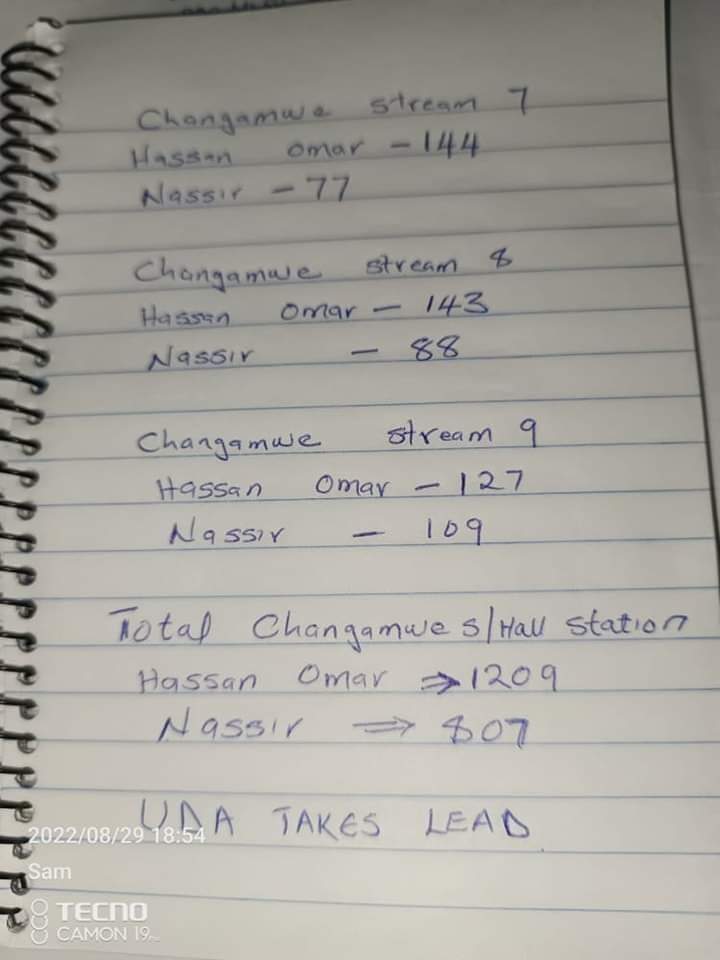 Changamwe stream 7
Hassan Omar - 144
Nassir - 77
Changamwe stream 8
Hassan Omar - 143
Nassir - 88
Changamwe stream 9
Hassan Omar - 127
Nassir - 109
Total Changamwe S/Hall Station
Hassan Omar ⇒ 1209
Nassir ⇒ 807
UDA TAKES LEAD
2022/08/29 18:54
Sam
TECNO
CAMON 19